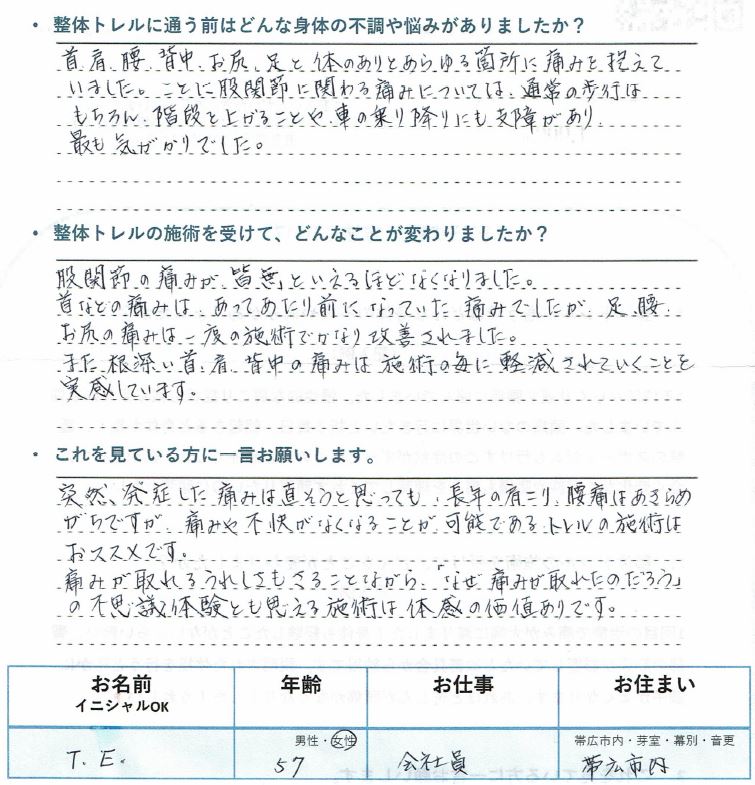 ・ 整体トレルに通う前はどんな身体の不調や悩みがありましたか？
首、肩、腰、背中、お尻、足と体のありとあらゆる箇所に痛みを抱えて
いました。ことに股関節に関わる痛みについては、通常の歩行は
もちろん、階段を上がることや、車の乗り降りにも支障があり、
最も気がかりでした。
・ 整体トレルの施術を受けて、どんなことが変わりましたか？
股関節の痛みが、皆無」といえるほどなくなりました。
首などの痛みは、あってあたり前になっていた痛みでしたが、足、腰、
お尻の痛みは一度の施術でかなり改善されました。
また、根深い首、肩、背中の痛みは施術の毎に軽減されていくことを
実感しています。
・ これを見ている方に一言お願いします。
突然、発症した痛みは直そうと思っても、長年の肩こり、腰痛はあきらめ
がちですが、痛みや不快がなくなることが可能であるトレルの施術は
おススメです。
痛みが取れるうれしさもさることながら、「なぜ痛みが取れたのだろう」
の不思議体験とも思える施術は体感の価値ありです。
お名前 年齢 お仕事 お住まい
イニシャルOK
男性・女性 帯広市内・芽室・幕別・音更
T. E. 57 会社員 帯広市内